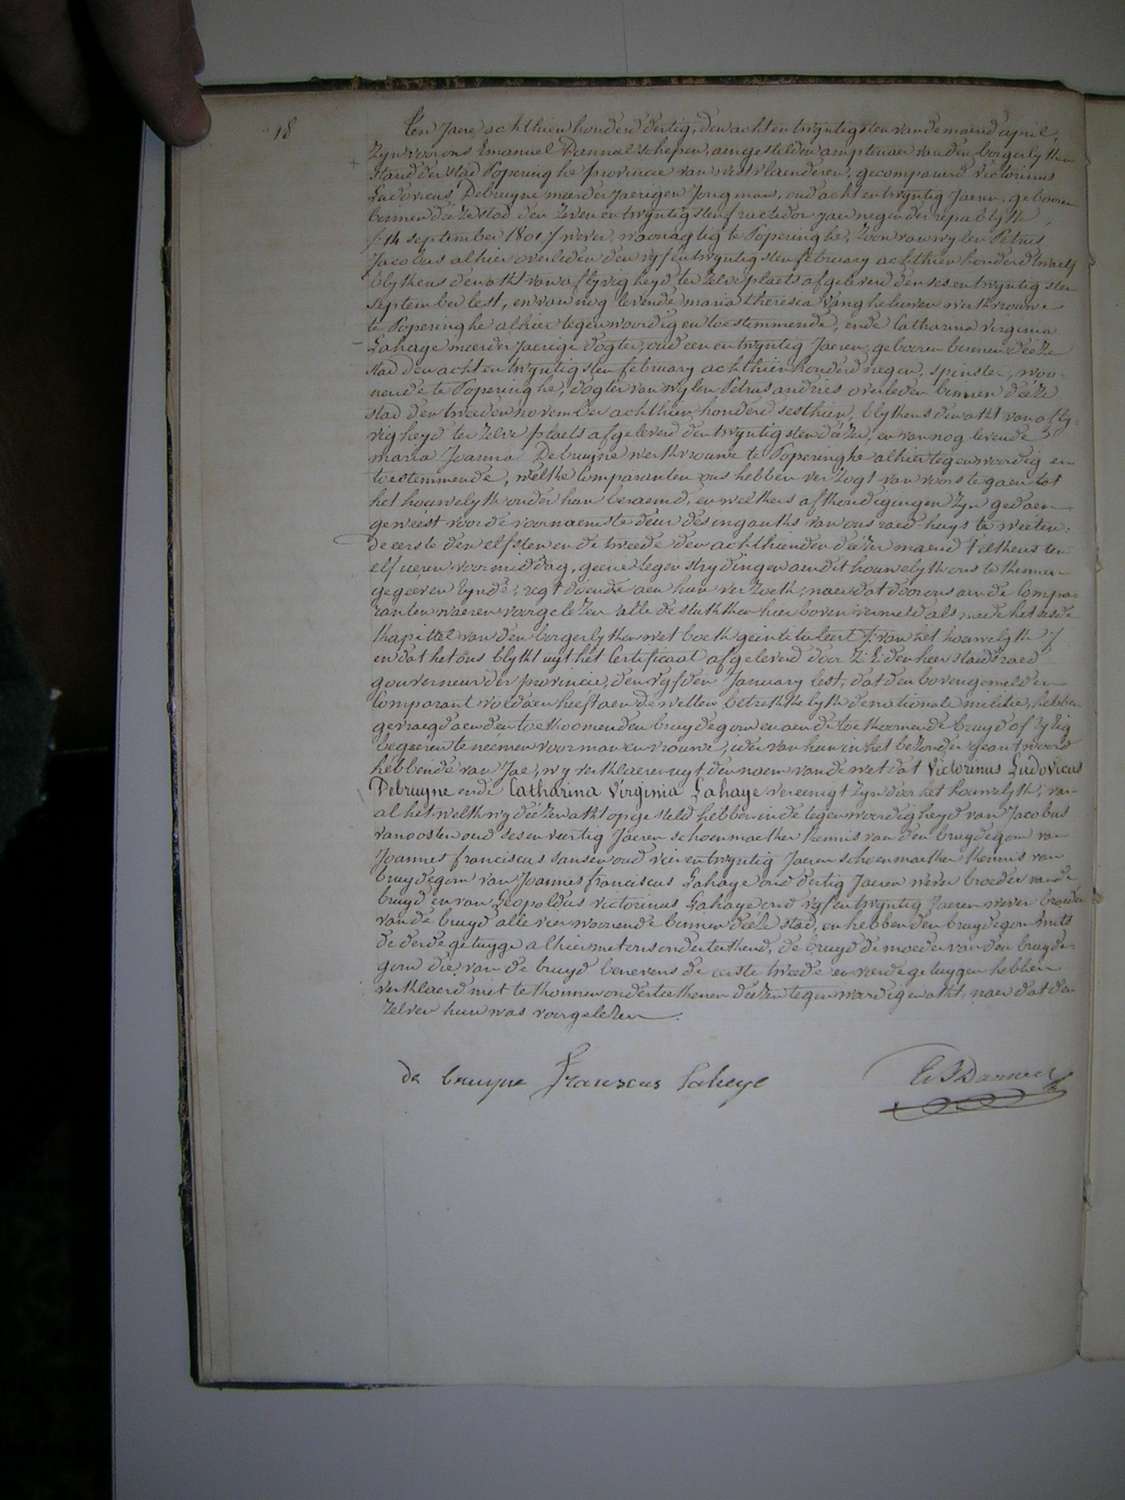 18
Ten Jaere achthien honderd dertig, den acht en twyntigsten van de maend april,
zyn voor ons Emanuel Dannal schepen, aengestelden amptenaer van den borgerlyken
stand der stad Poperinghe provincie van westvlaenderen, gecompareerd victorinus
Ludovicus Debruyne meerderjaerigen Jongman, oud acht en twyntig Jaeren, geboren
binnen deeze stad den zeven en twyntigsten fructidor jaer negen der republyk
14 september 1801 / wever, woonagtig te Poperinghe, zoon van wylen Petrus
Jacobus alhier overleden den vyf en twyntigsten february achthien honderd
blykens den akt van aflyvigheyd ter zelve plaets afgeleverd den ses en twyntigsten
september lest, en van nog levende maria theresia vangheluwen werkvrouwe
te Poperinghe alhier tegenwoordig en toestemmende, ende Catharina virginia
Lahaye meerderjaerige dogter, oud een en twyntig Jaeren, geboren binnen deeze
stad den acht en twyntigsten february achthien honderd negen, spinster, woo-
nende te Poperinghe, dogter van wylen Petrus andries overleden binnen deeze
stad den tweeden november achthien honderd sesthien, blykens den akt van afly-
vigheyd ter zelve plaets afgeleverd den twyntigsten deezer, en van nog levende
maria Joanna Debruyne werkvrouwe te Poperinghe alhier tegenwoordig en
toestemmende, welke Comparanten ons hebben verzogt van voors te gaen tot
het houwelyk onder hun beraemd, en welkers afkondigingen zyn gedaen
geweest voor de voornaemste deur des ingankx van ons raed-huys te weeten:
de eerste den elfsten en de tweede den achthienden deezer maend telkens ten
elf ueren voormiddag, geene tegenstrydingen aen dit houwelyk ons te kennen
gegeeven zynde; regt doende aen hun verzoek, naer dat door ons aen de Compa-
ranten waeren voorgelezen alle de stukken hier boven vermeld als mede het sesde
kapittel van den borgerlyken wet boek geintituleert / van het houwelyk /
en dat het ons blykt uyt het Certificaat afgeleverd door Z: E: den heer staedsraed
gouverneur der provincie, den vyfden January lest, dat den bovengemelden
Comparant voldaen heeft aen de wetten betrekkelyk de nationale militie, hebben
gevraegd aen den toekoomenden bruydegom en aen de toekoomende bruyd of zy lig
begeeren te neemen voor man en vrouwe, ider van hun in het bezonder geantwoord
hebbende van Jae, wy verklaeren uyt den naem van de wet dat Victorinus Ludovicus
Debruyne ende Catharina Virginia Lahaye vereenigt zyn door het houwelyk, van
al het welk wy deezen akt opgesteld hebben in de tegenwoordigheyd van Jacobus
vanoosten oud ses en veertig Jaeren schoenmaeker kennis van den bruydegom van
Joannes franciscus Jansen oud vier en twyntig Jaeren schoenmaeker kennis van
bruydegom van Joannes franciscus Lahaye oud dertig Jaeren wever broeder van de
bruyd en van Leopoldus victorinus Lahaye oud vyf en twyntig Jaeren wever broeder
van de bruyd alle vier woonende binnen deeze stad, en hebben den bruydegom mits
de derde getuyge alhier met ons onderteekend, de bruyd de moeder van den bruyde-
gom die van de bruyd benevens de eerste tweede en vierde getuygen hebben
verklaerd niet te konnen onderteekenen deezen tegenwoordigen akt, naer dat den
zelven hun was voorgelezen.
de bruyne Franscus Laheye